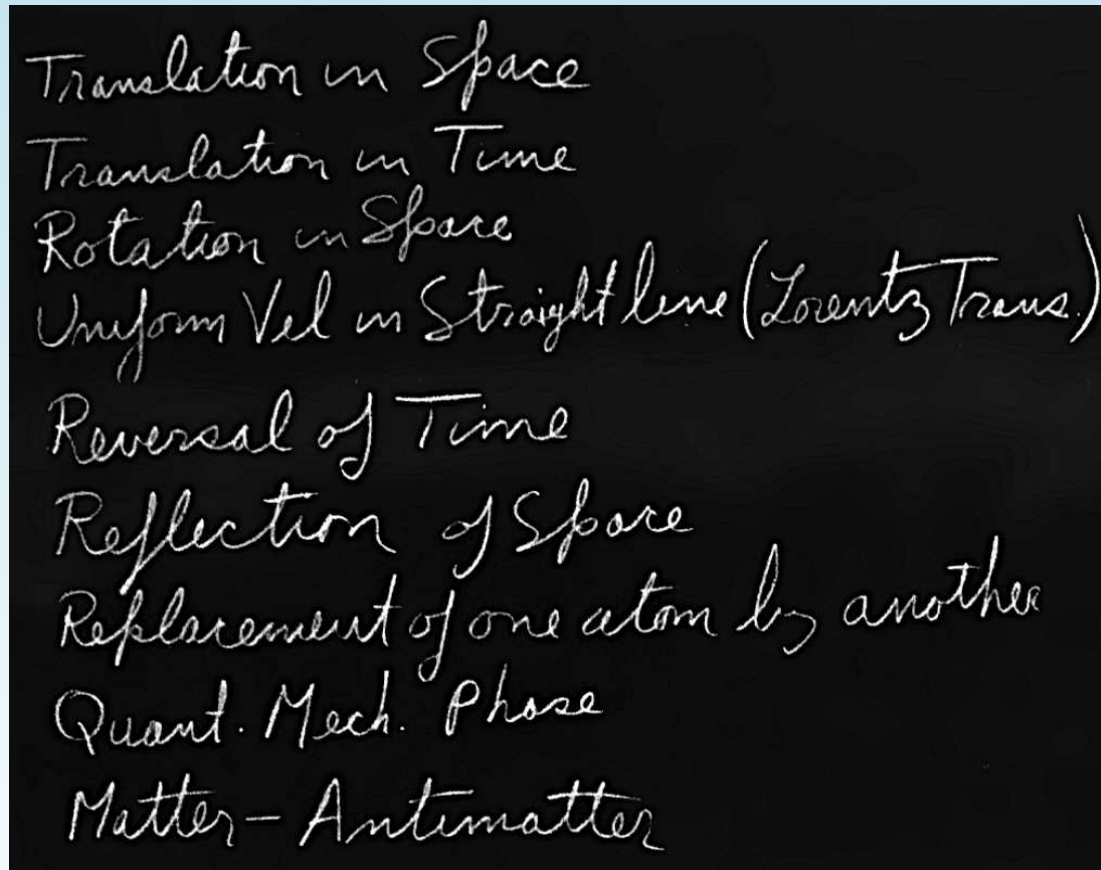 Translation in Space
Translation in Time
Rotation in Space
Uniform Vel in Straight line (Lorentz Trans.)
Reversal of Time
Reflection of Space
Replacement of one atom by another
Quant. Mech. Phase
Matter - Antimatter